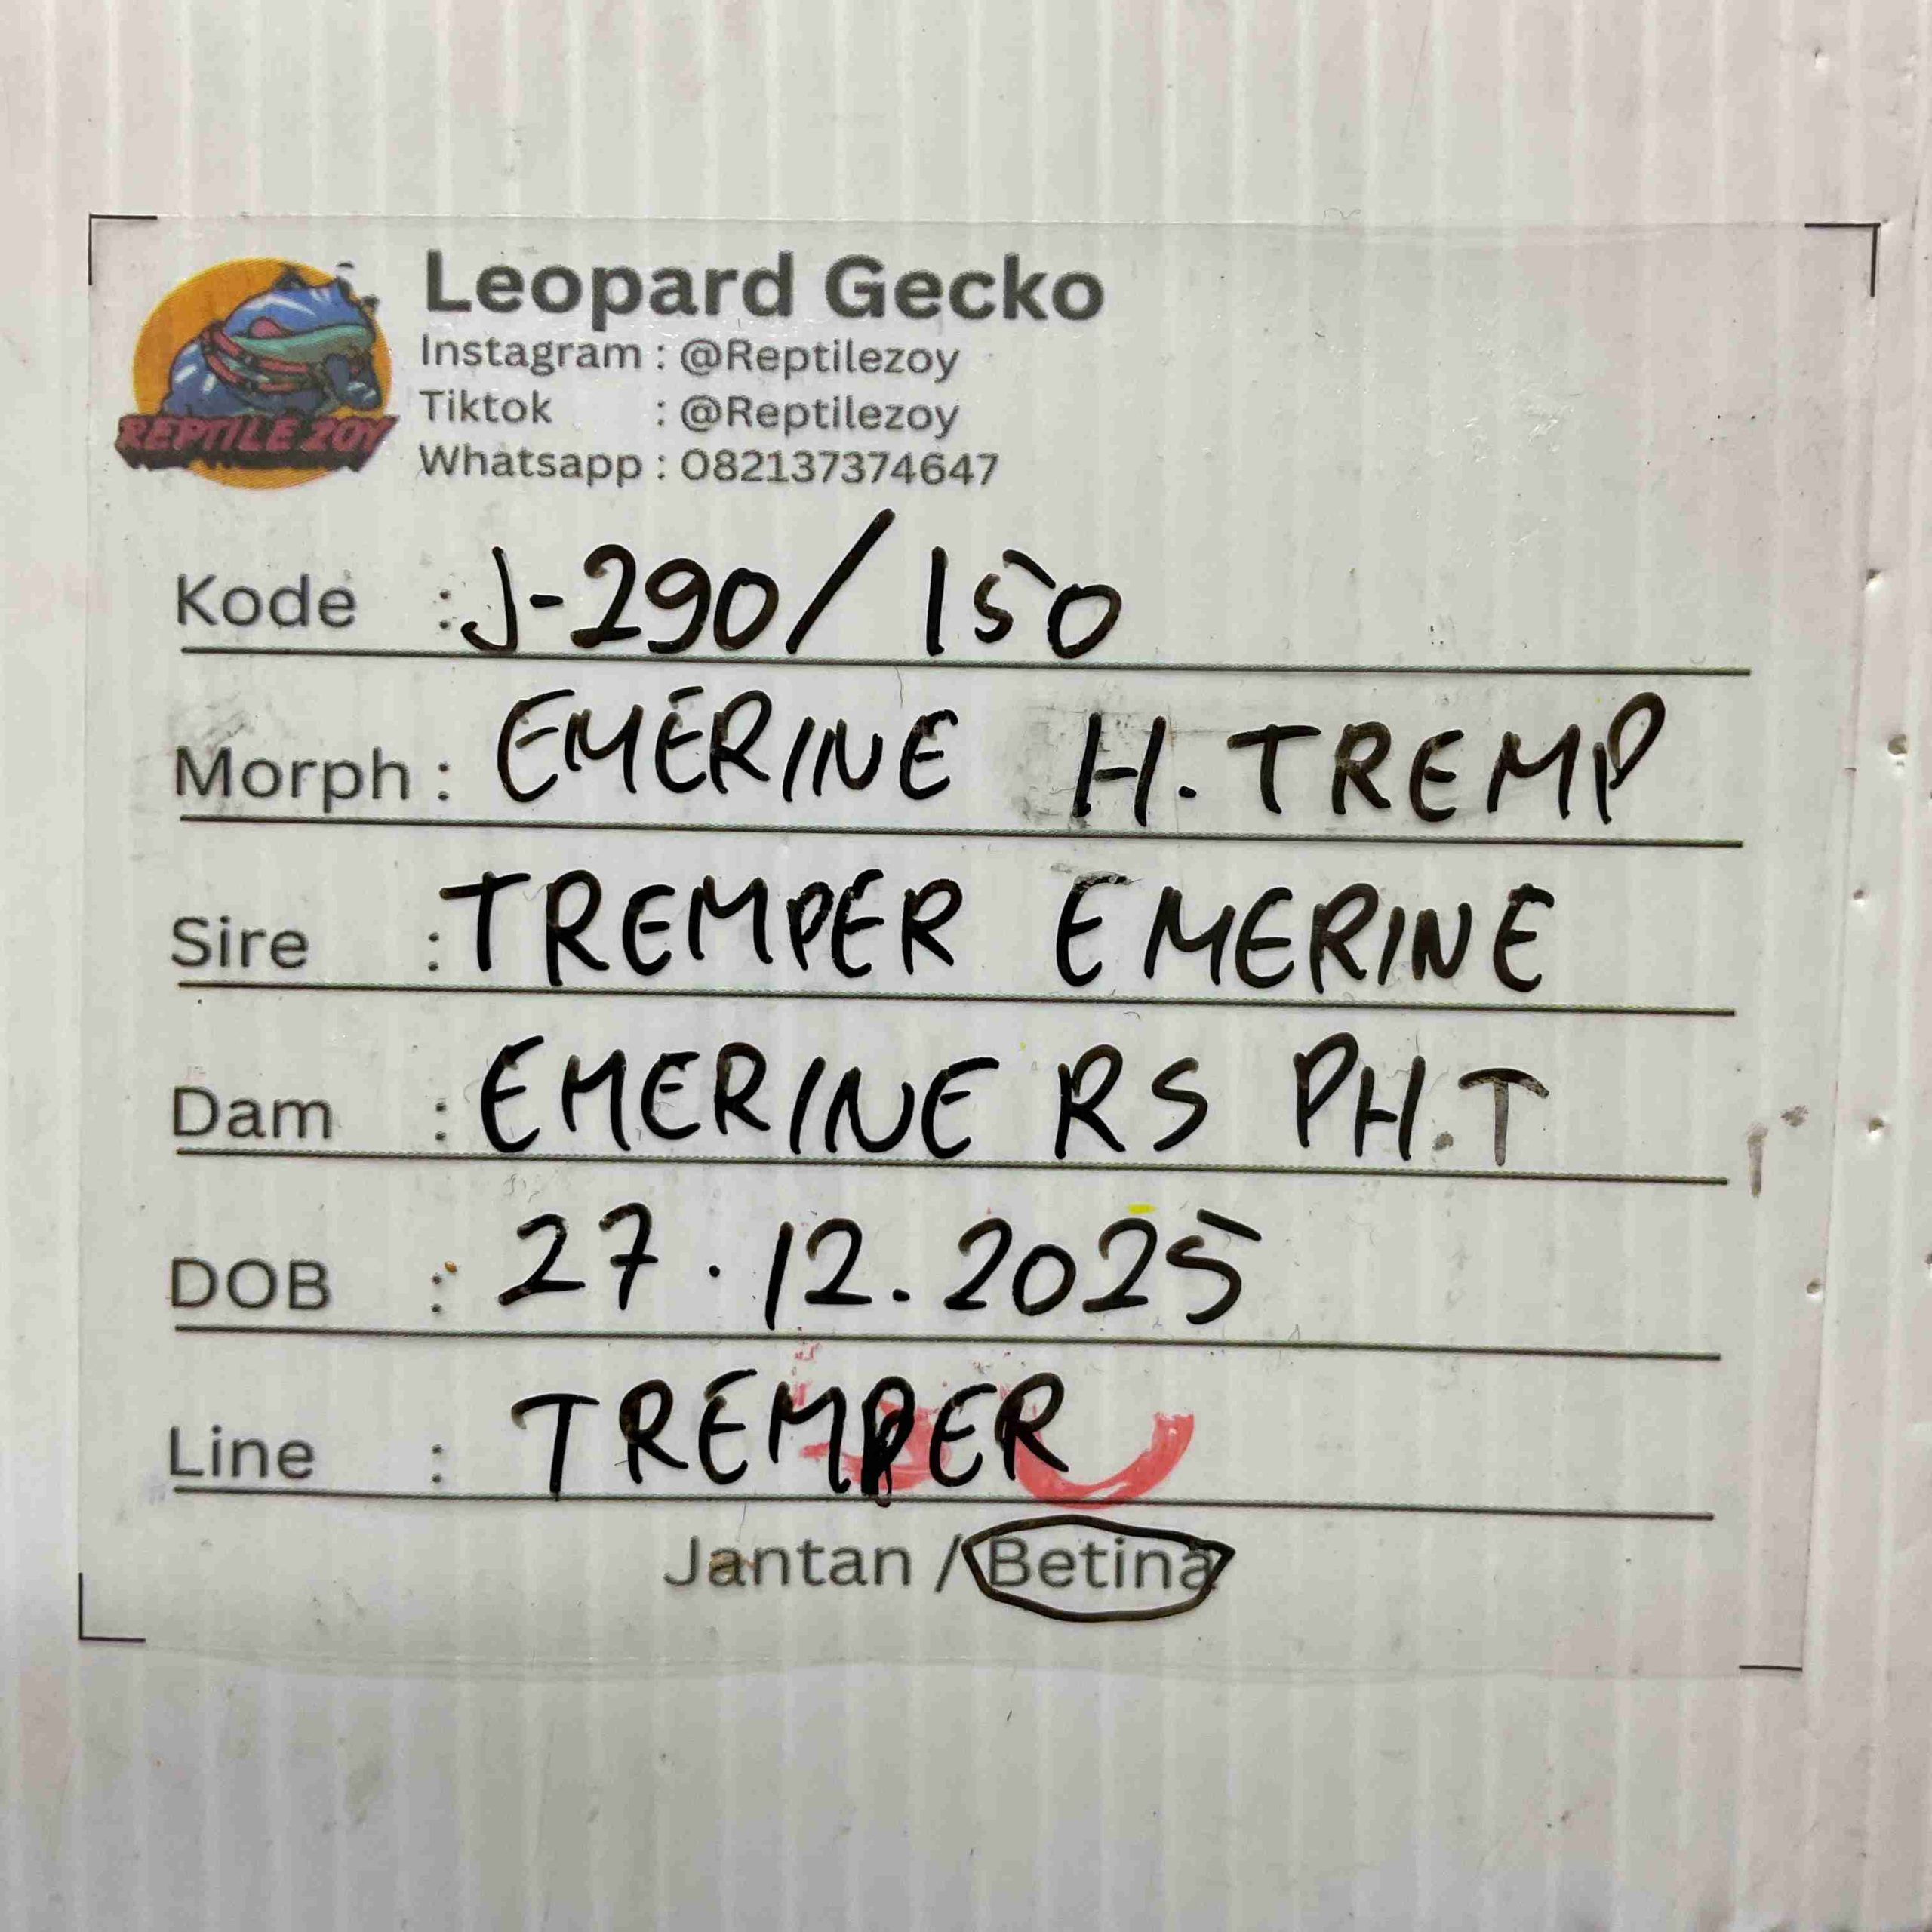 REPTILE ZOY
Leopard Gecko
Instagram : @Reptilezoy
Tiktok : @Reptilezoy
Whatsapp : 082137374647
Kode : J-290/ 150
Morph : EMERINE H. TREMP
Sire : TREMPER EMERINE
Dam : EMERINE RS PH.T
DOB : 27.12.2025
Line : TREMPER
Jantan / Betina